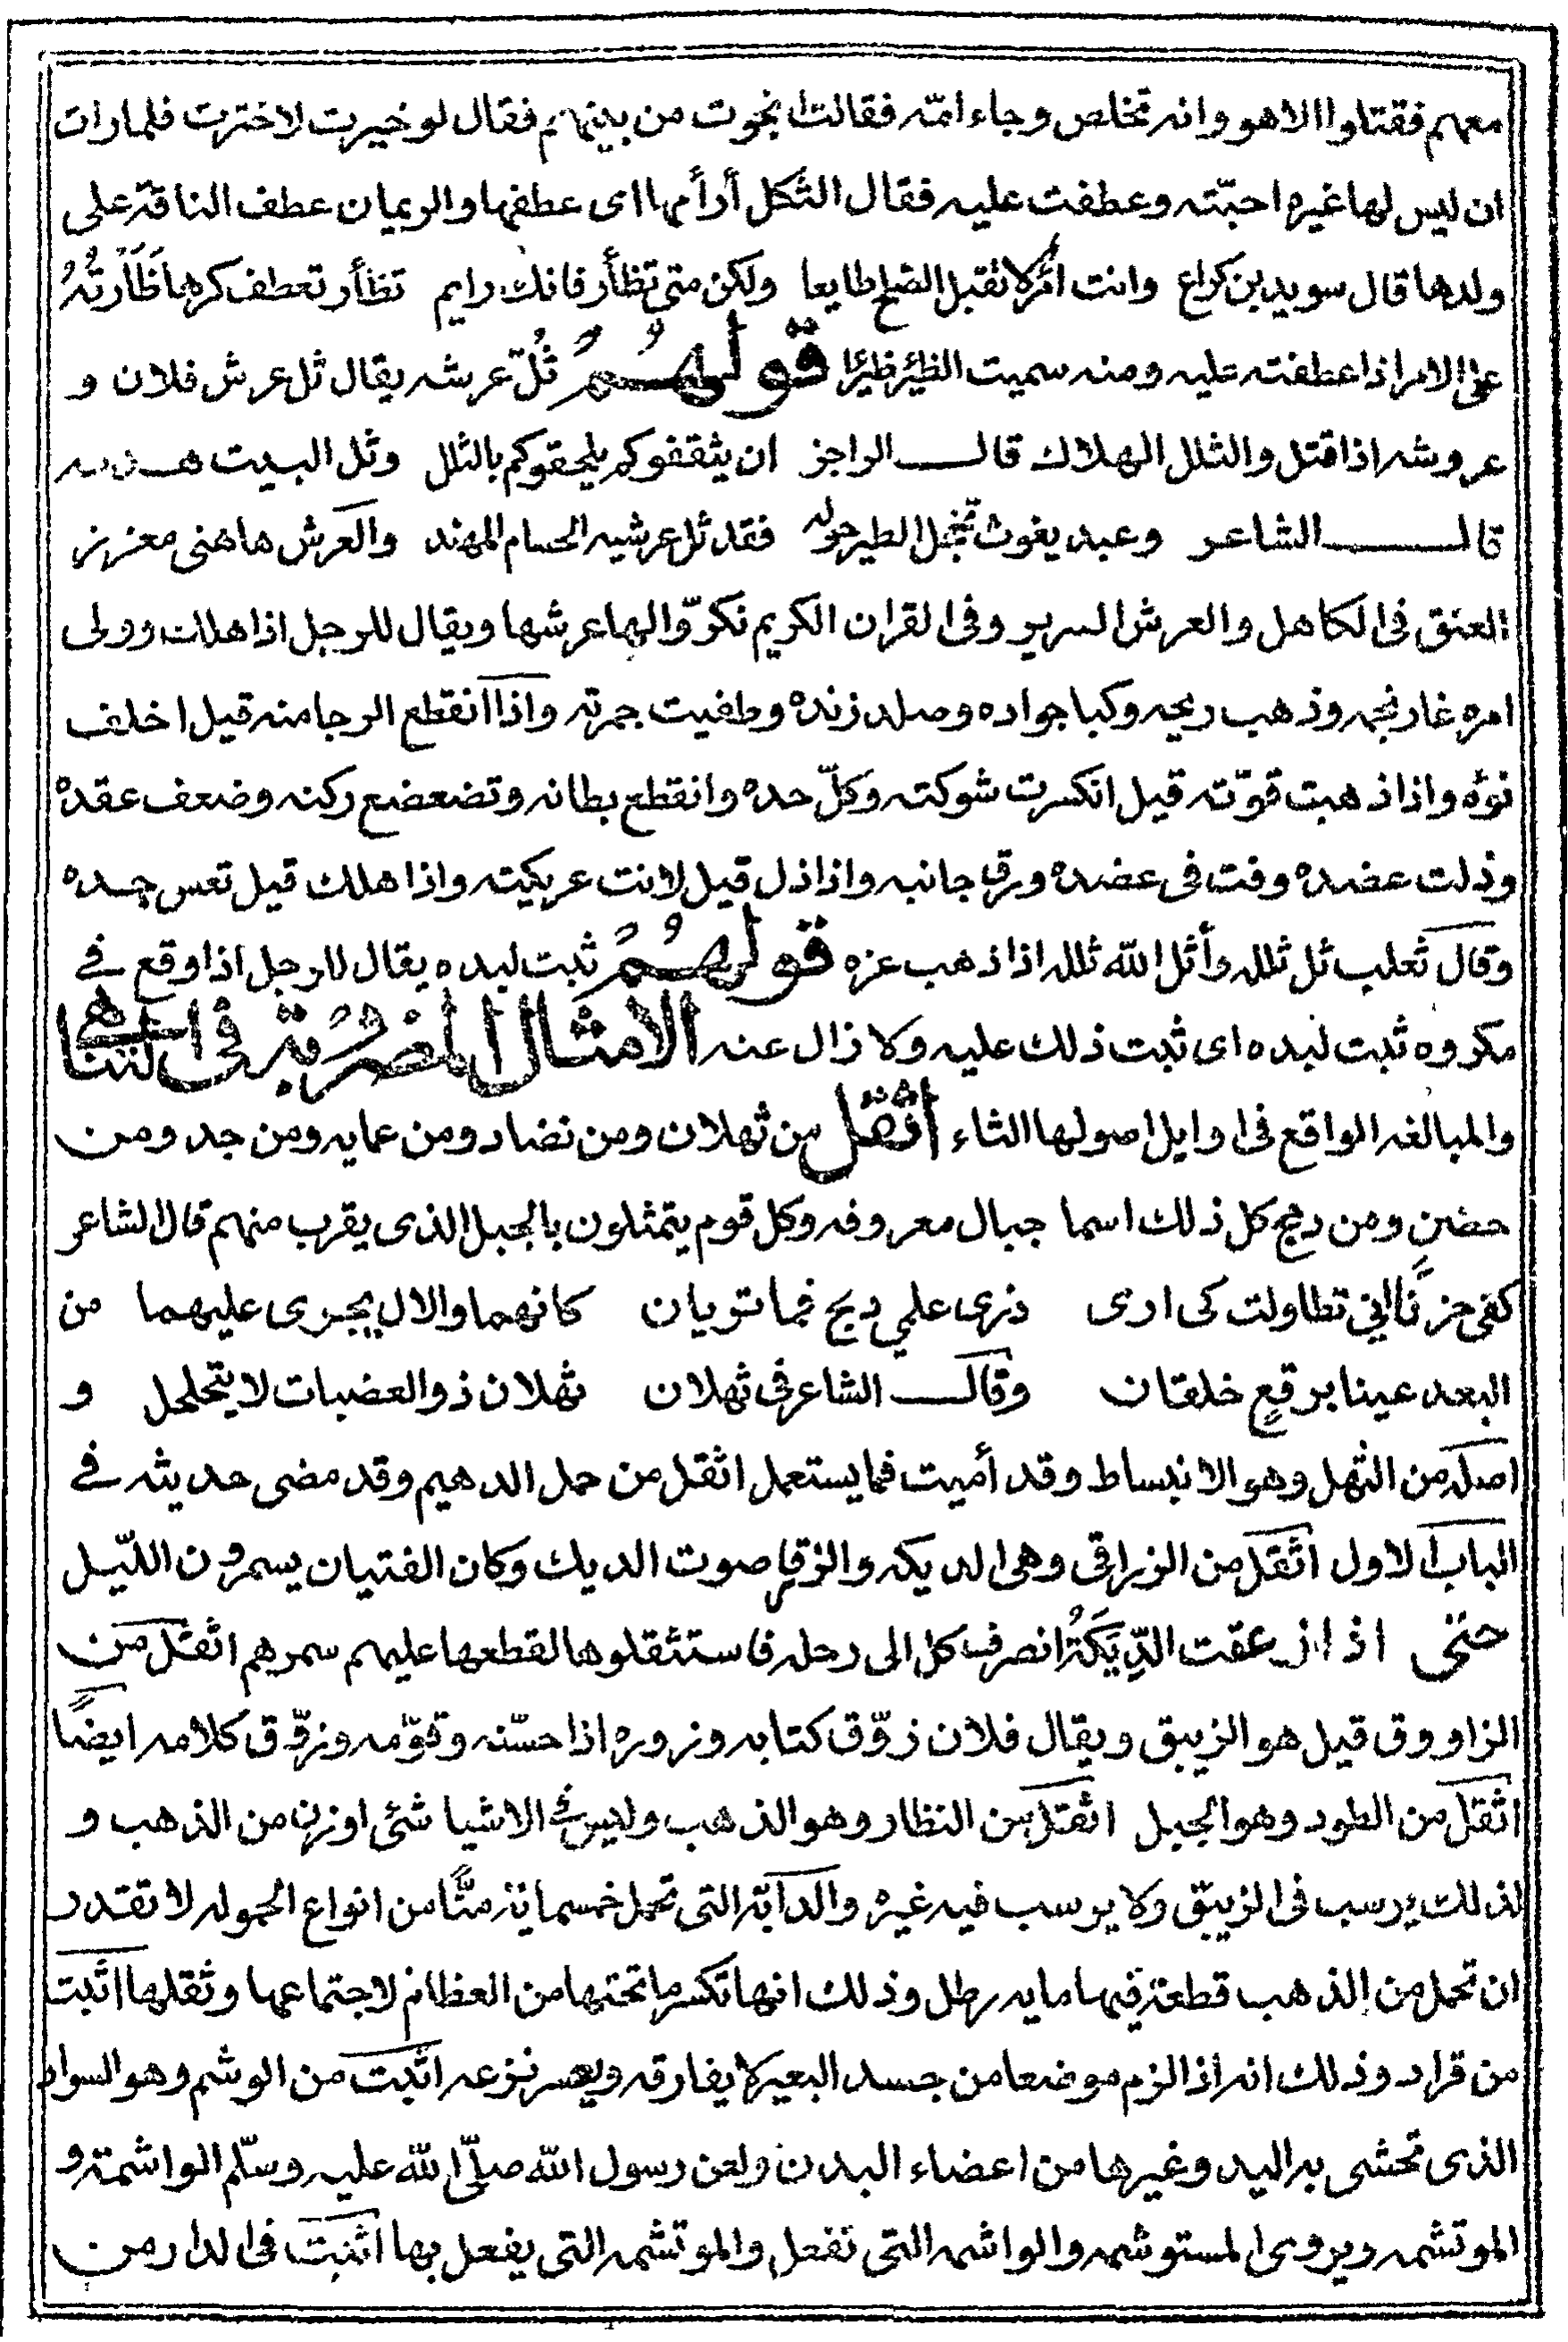 معهم فقتلوا الا هو وانه تخلص وجاء امّه فقالت انجوت من بينهم فقال لو خيرت لاخترت فلما رات
ان ليس لها غيره احبّته وعطفت عليه فقال الثكل أرأمها اى عطفها والريمان عطف الناقة على
ولدها قال سويد بن كراع وانت امرؤ لا تقبل الصلح طايعا ولكن متى تظأر فانك رايم تظأر تعطف كرها ظَأَرْتُهُ
على الامر اذا عطفته عليه ومنه سميت الظئر ظئرا قولهُمُ ثُلّ عرشه يقال ثل عرش فلان و
عروشه اذا قتل والثلل الهلاك قالــ الراجز ان يثقفوكم يلحقوكم بالثلل وثل البيت هدمه
قالــ الشاعر وعبد يغوث تحجل الطير حوله فقد ثل عرشيه الحسام المهند والعرش هاهنى مغزز
العنق فى الكاهل والعرش السرير وفى القران الكريم نكرّوا لها عرشها ويقال للرجل اذا هلك وولى
امره غار نجمه وذهب ريحه وكبا جواده وصلد زنده وطفيت جمرته واذا انقطع الرجا منه قيل اخلف
نوؤه واذا ذهبت قوّته قيل انكسرت شوكته وكلّ حده وانقطع بطانه وتضعضع ركنه وضعف عقده
وذلت عضده وفت فى عضده ورق جانبه واذا ذل قيل لانت عريكيته واذا هلك قيل تعس جده
وقال ثعلب ثل ثلله وأثل الله ثلله اذا ذهب عزه قولهُمُ ثبت لبده يقال للرجل اذا وقع فى
مكروه ثبت لبده اى ثبت ذلك عليه ولا زال عنه الامثال المضروبة فى التناهى
والمبالغه الواقع فى اوايل اصولها الثاء اثقل من ثهلان ومن نضاد ومن عمايه ومن جد ومن
حضن ومن دمخ كل ذلك اسما جبال معروفه وكل قوم يتمثلون بالجبل الذى يقرب منهم قال الشاعر
كفى حزنًا انى تطاولت كى ارى ذرى علمى دمخ فما تريان كانهما والال يجرى عليهما من
البعد عينا برقعٍ خلقان وقالــ الشاعر فى ثهلان ثهلان ذو العضبات لا يتحلحل و
اصله من الثهل وهو الانبساط وقد أميت فما يستعمل اثقل من حمل الدهيم وقد مضى حديثه فى
الباب الاول اثقل من الزواقى وهى الديكه والزقا صوت الديك وكان الفتيان يسمرون الليّل
حتى اذا زعقت الدِّيَكَةُ انصرف كل الى رحله فاستثقلوها لقطعها عليهم سمرهم اثقل من
الزاووق قيل هو الزيبق ويقال فلان زوّق كتابه وزوره اذا حسّنه وقوّمه وزوّق كلامه ايضًا
اثقل من الطود وهو الجبل اثقل من النظار وهو الذهب وليس فى الاشيا شئ اوزن من الذهب و
لذلك يرسب فى الزيبق ولا يرسب فيه غيره والدابّة التى تحمل خمسماية منًّا من انواع الحموله لا تقدر
ان تحمل من الذهب قطعة فيها مايه رطل وذلك انها تكسر ما تحتها من العظام لاجتماعها وثقلها اثبت
من قراد وذلك انه اذا لزم موضعا من جسد البعير لا يفارقه ويعسر نزعه اثبت من الوشم وهو السواد
الذى تحشى به اليد وغيرها من اعضاء البدن ولعن رسول الله صلّى الله عليه وسلّم الواشمة و
الموتشمه ويروى المستوشمه والواشمه التى تفعل والموتشمه التى يفعل بها اثبت فى الدار من